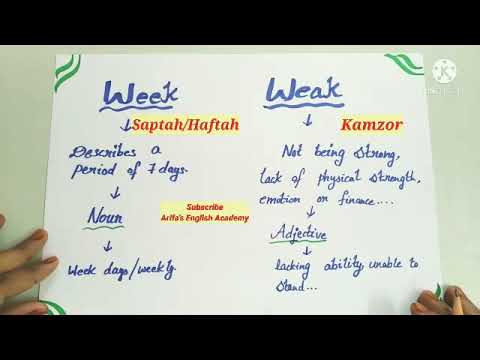 Week
Saptah/Haftah
Describes a
period of 7 days.
Noun
Week days/weekly
Subscribe
Arifa's English Academy
Weak
Kamzor
Not being strong,
lack of physical strength,
emotion or finance....
Adjective
lacking ability, unable to
stand...